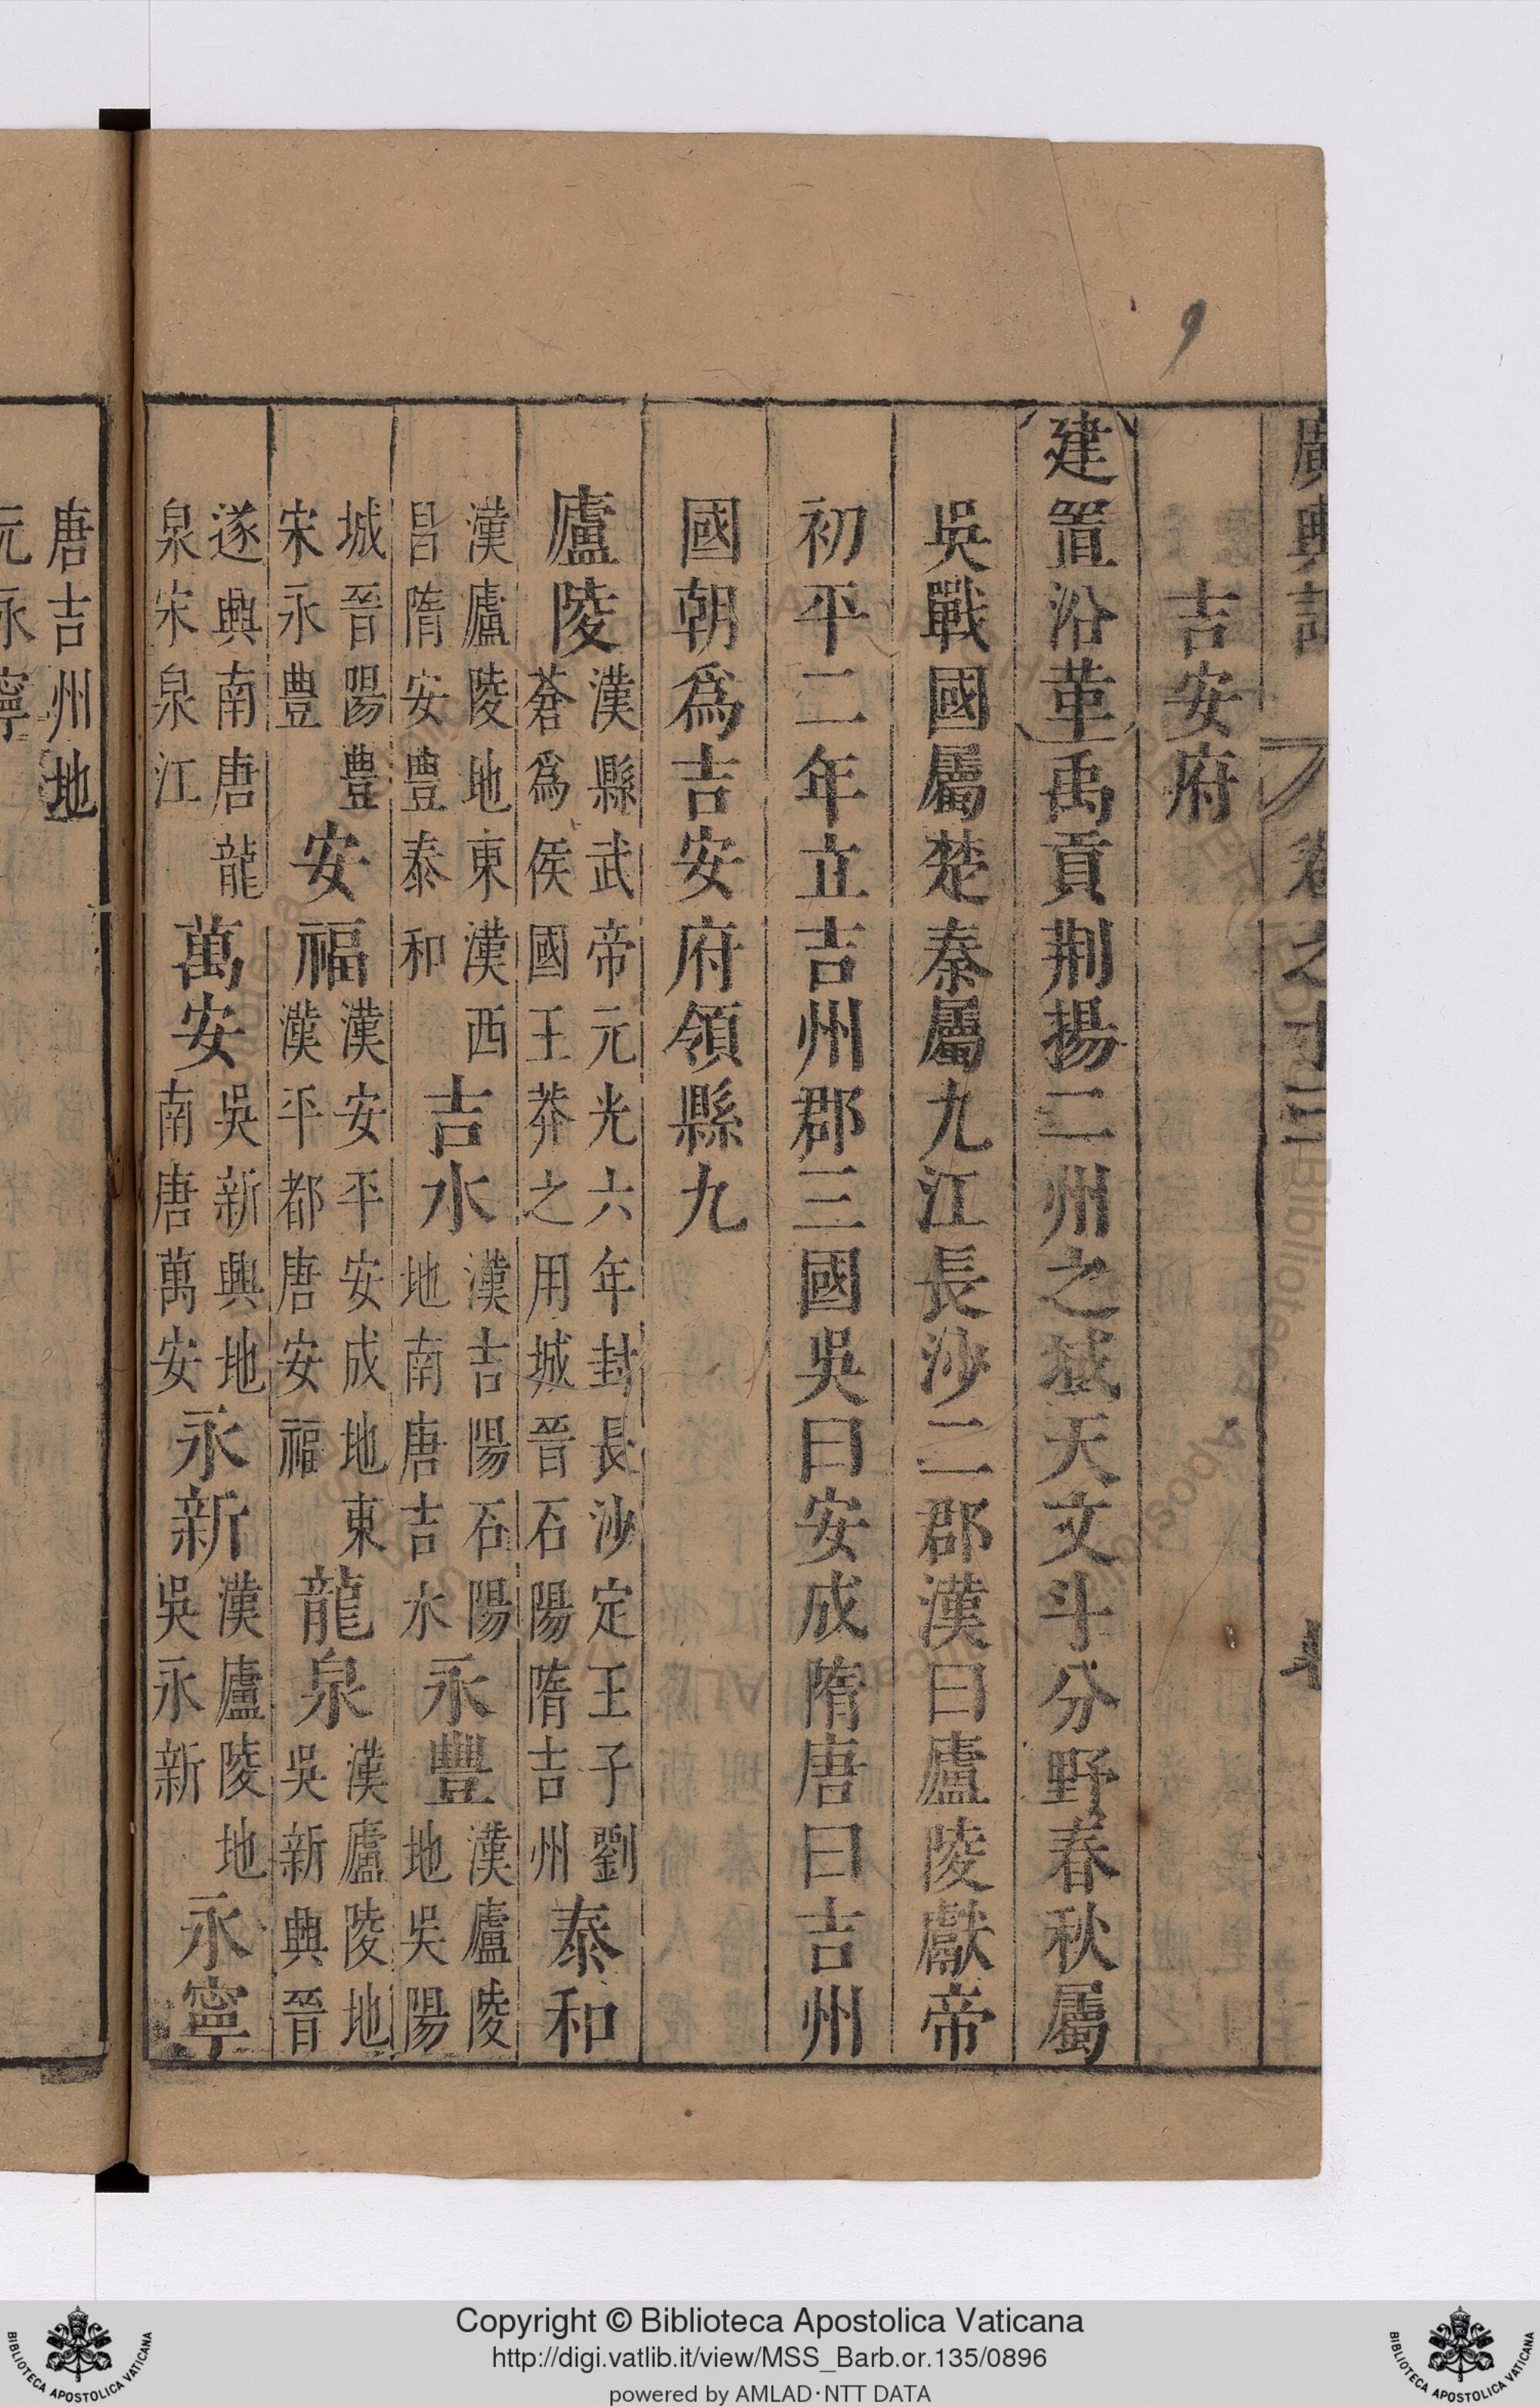 廣輿記 卷之十三
吉安府
建置沿革禹貢荆揚二州之域天文斗分野春秋屬
吳戰國屬楚秦屬九江長沙二郡漢曰廬陵獻帝
初平二年立吉州郡三國吳曰安成隋唐曰吉州
國朝爲吉安府領縣九
廬陵漢縣武帝元光六年封長沙定王子劉蒼爲侯國王莽之用城晉石陽隋吉州泰和
漢廬陵地東漢西昌隋安豊泰和吉水漢吉陽石陽地南唐吉水永豐漢廬陵地吳陽
城晉陽豊宋永豊安福漢安平安成地東漢平都唐安福龍泉漢廬陵地吳新興晉
遂興南唐龍泉宋泉江萬安吳新興地南唐萬安永新漢廬陵地吳永新永寧
唐吉州地
元永寧
9
Copyright © Biblioteca Apostolica Vaticana
http://digi.vatlib.it/view/MSS_Barb.or.135/0896
powered by AMLAD·NTT DATA
BIBLIOTECA APOSTOLICA VATICANA
BIBLIOTECA APOSTOLICA VATICANA